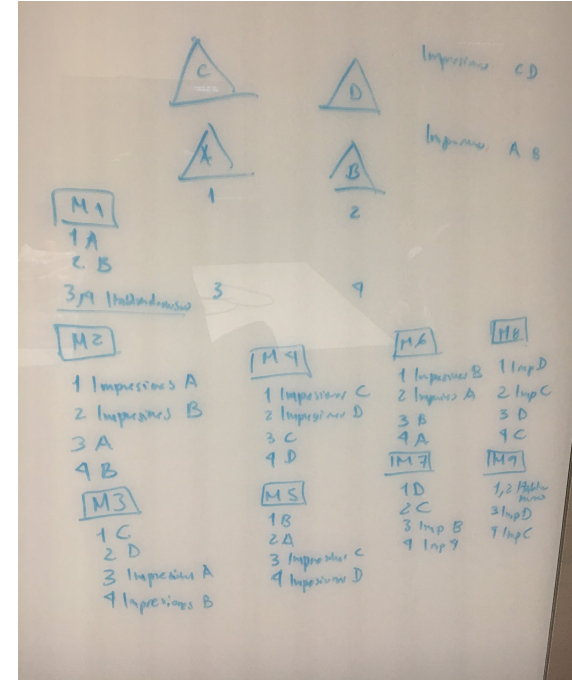 C
D
Impresiones CD
A
B
Impresiones A B
1
2
M1
1 A
2 B
3,4
3
4
M2
1 Impresiones A
2 Impresiones B
3 A
4 B
M3
1 C
2 D
3 Impresiones A
4 Impresiones B
M4
1 Impresiones C
2 Impresiones D
3 C
4 D
M5
1 B
2 A
3 Impresiones C
4 Impresiones D
M6
1 Impresiones B
2 Impresiones A
3 B
4 A
M7
1 D
2 C
3 Imp B
4 Imp 9
M8
1 Imp D
2 Imp C
3 D
4 C
M9
1,2
3 Imp D
4 Imp C